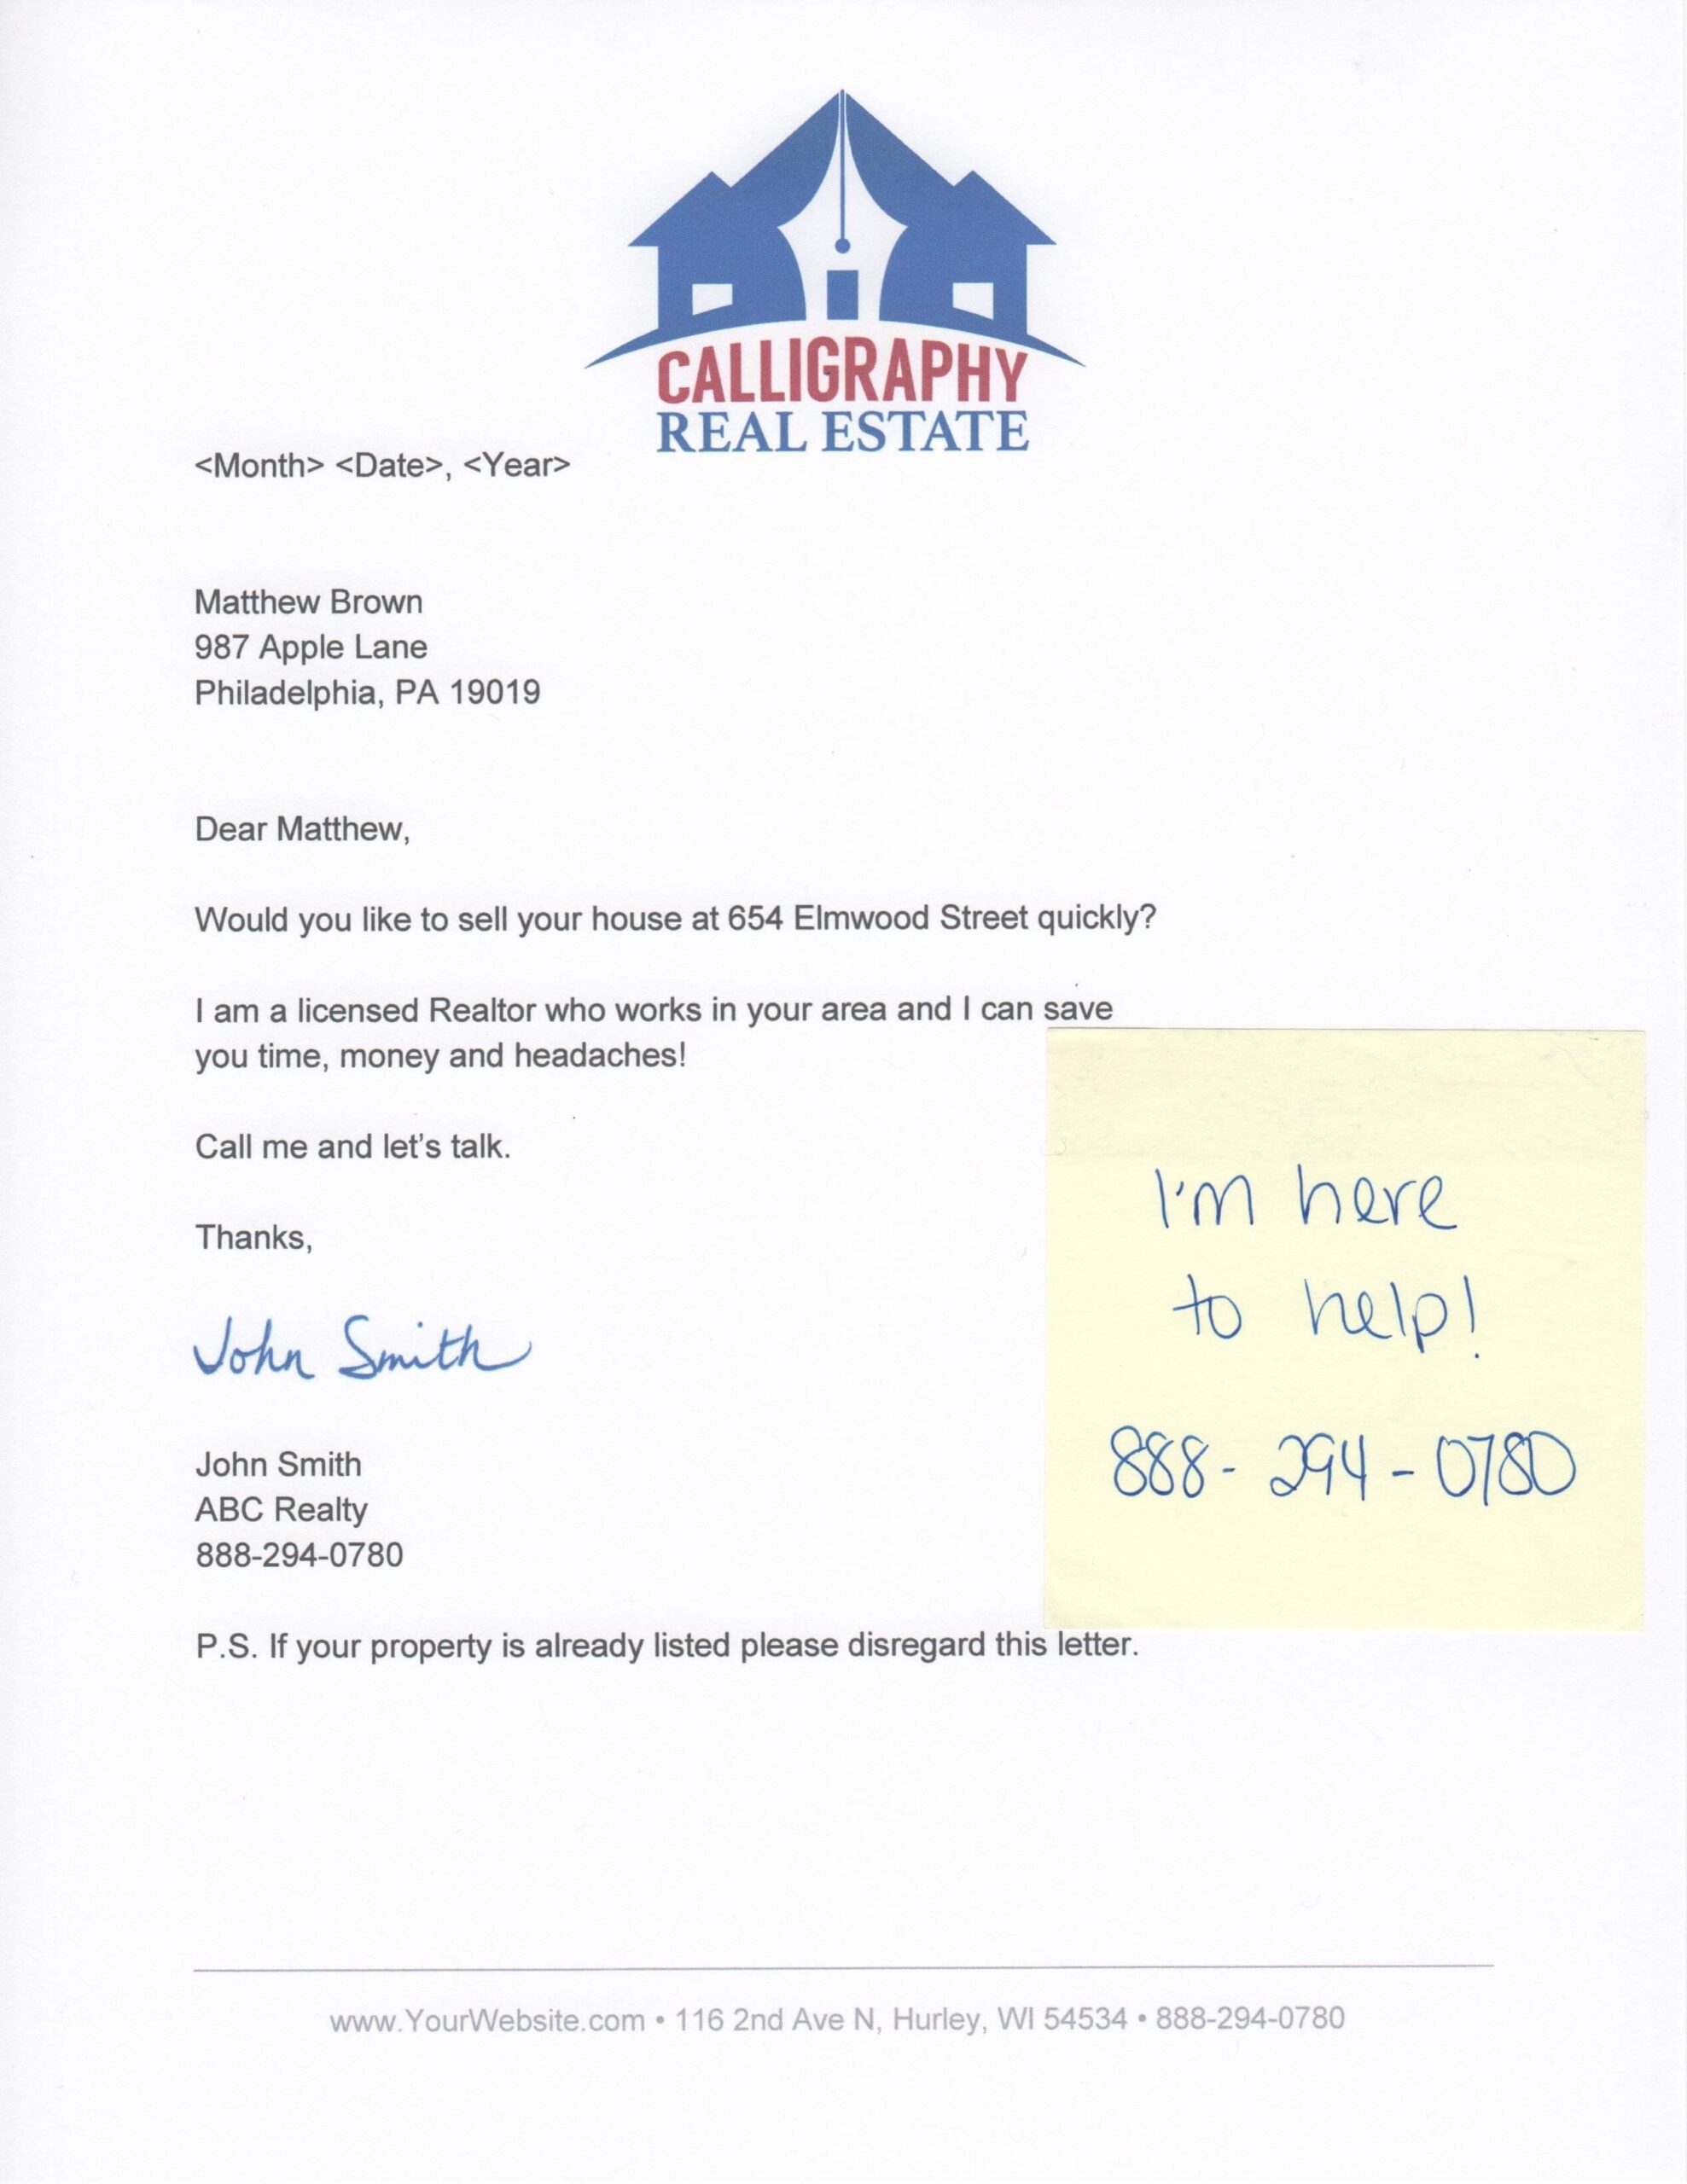 CALLIGRAPHY
REAL ESTATE
<Month> <Date>, <Year>
Matthew Brown
987 Apple Lane
Philadelphia, PA 19019
Dear Matthew,
Would you like to sell your house at 654 Elmwood Street quickly?
I am a licensed Realtor who works in your area and I can save
you time, money and headaches!
Call me and let's talk.
Thanks,
John Smith
John Smith
ABC Realty
888-294-0780
I'm here
to help!
888-294-0780
P.S. If your property is already listed please disregard this letter.
www.YourWebsite.com • 116 2nd Ave N, Hurley, WI 54534 • 888-294-0780